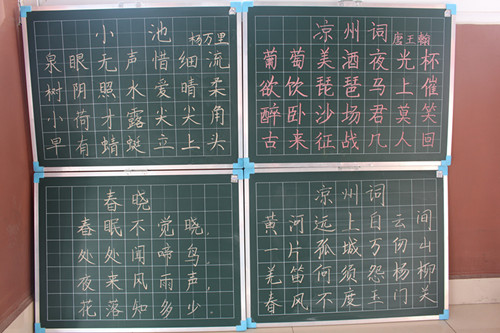 小池 杨万里
泉眼无声惜细流
树阴照水爱晴柔
小荷才露尖尖角
早有蜻蜓立上头
凉州词 唐王翰
葡萄美酒夜光杯
欲饮琵琶马上催
醉卧沙场君莫笑
古来征战几人回
春晓
春眠不觉晓,
处处闻啼鸟。
夜来风雨声,
花落知多少。
凉州词
黄河远上白云间
一片孤城万仞山
羌笛何须怨杨柳
春风不度玉门关